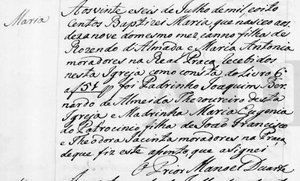 Maria
Aos vinte e seis de Julho de mil e oito
Centos Baptizei Maria, que nasceo aos
dezanove do mesmo mez e anno filha de
Rozendo d'Almada e Maria Antonia
moradores na Real Praça recebidos
nesta Igreja como consta do Livro 6º
af 154 foi Padrinho Joaquim Ber
nardo de Almeida Thezoureiro desta
Igreja e Madrinha Maria Eugenia
do Patrocinio filha de João Francisco
e Theodora Jacinta moradores na Praça
de que fiz este asento que asignei
O Prior Manoel Duarte